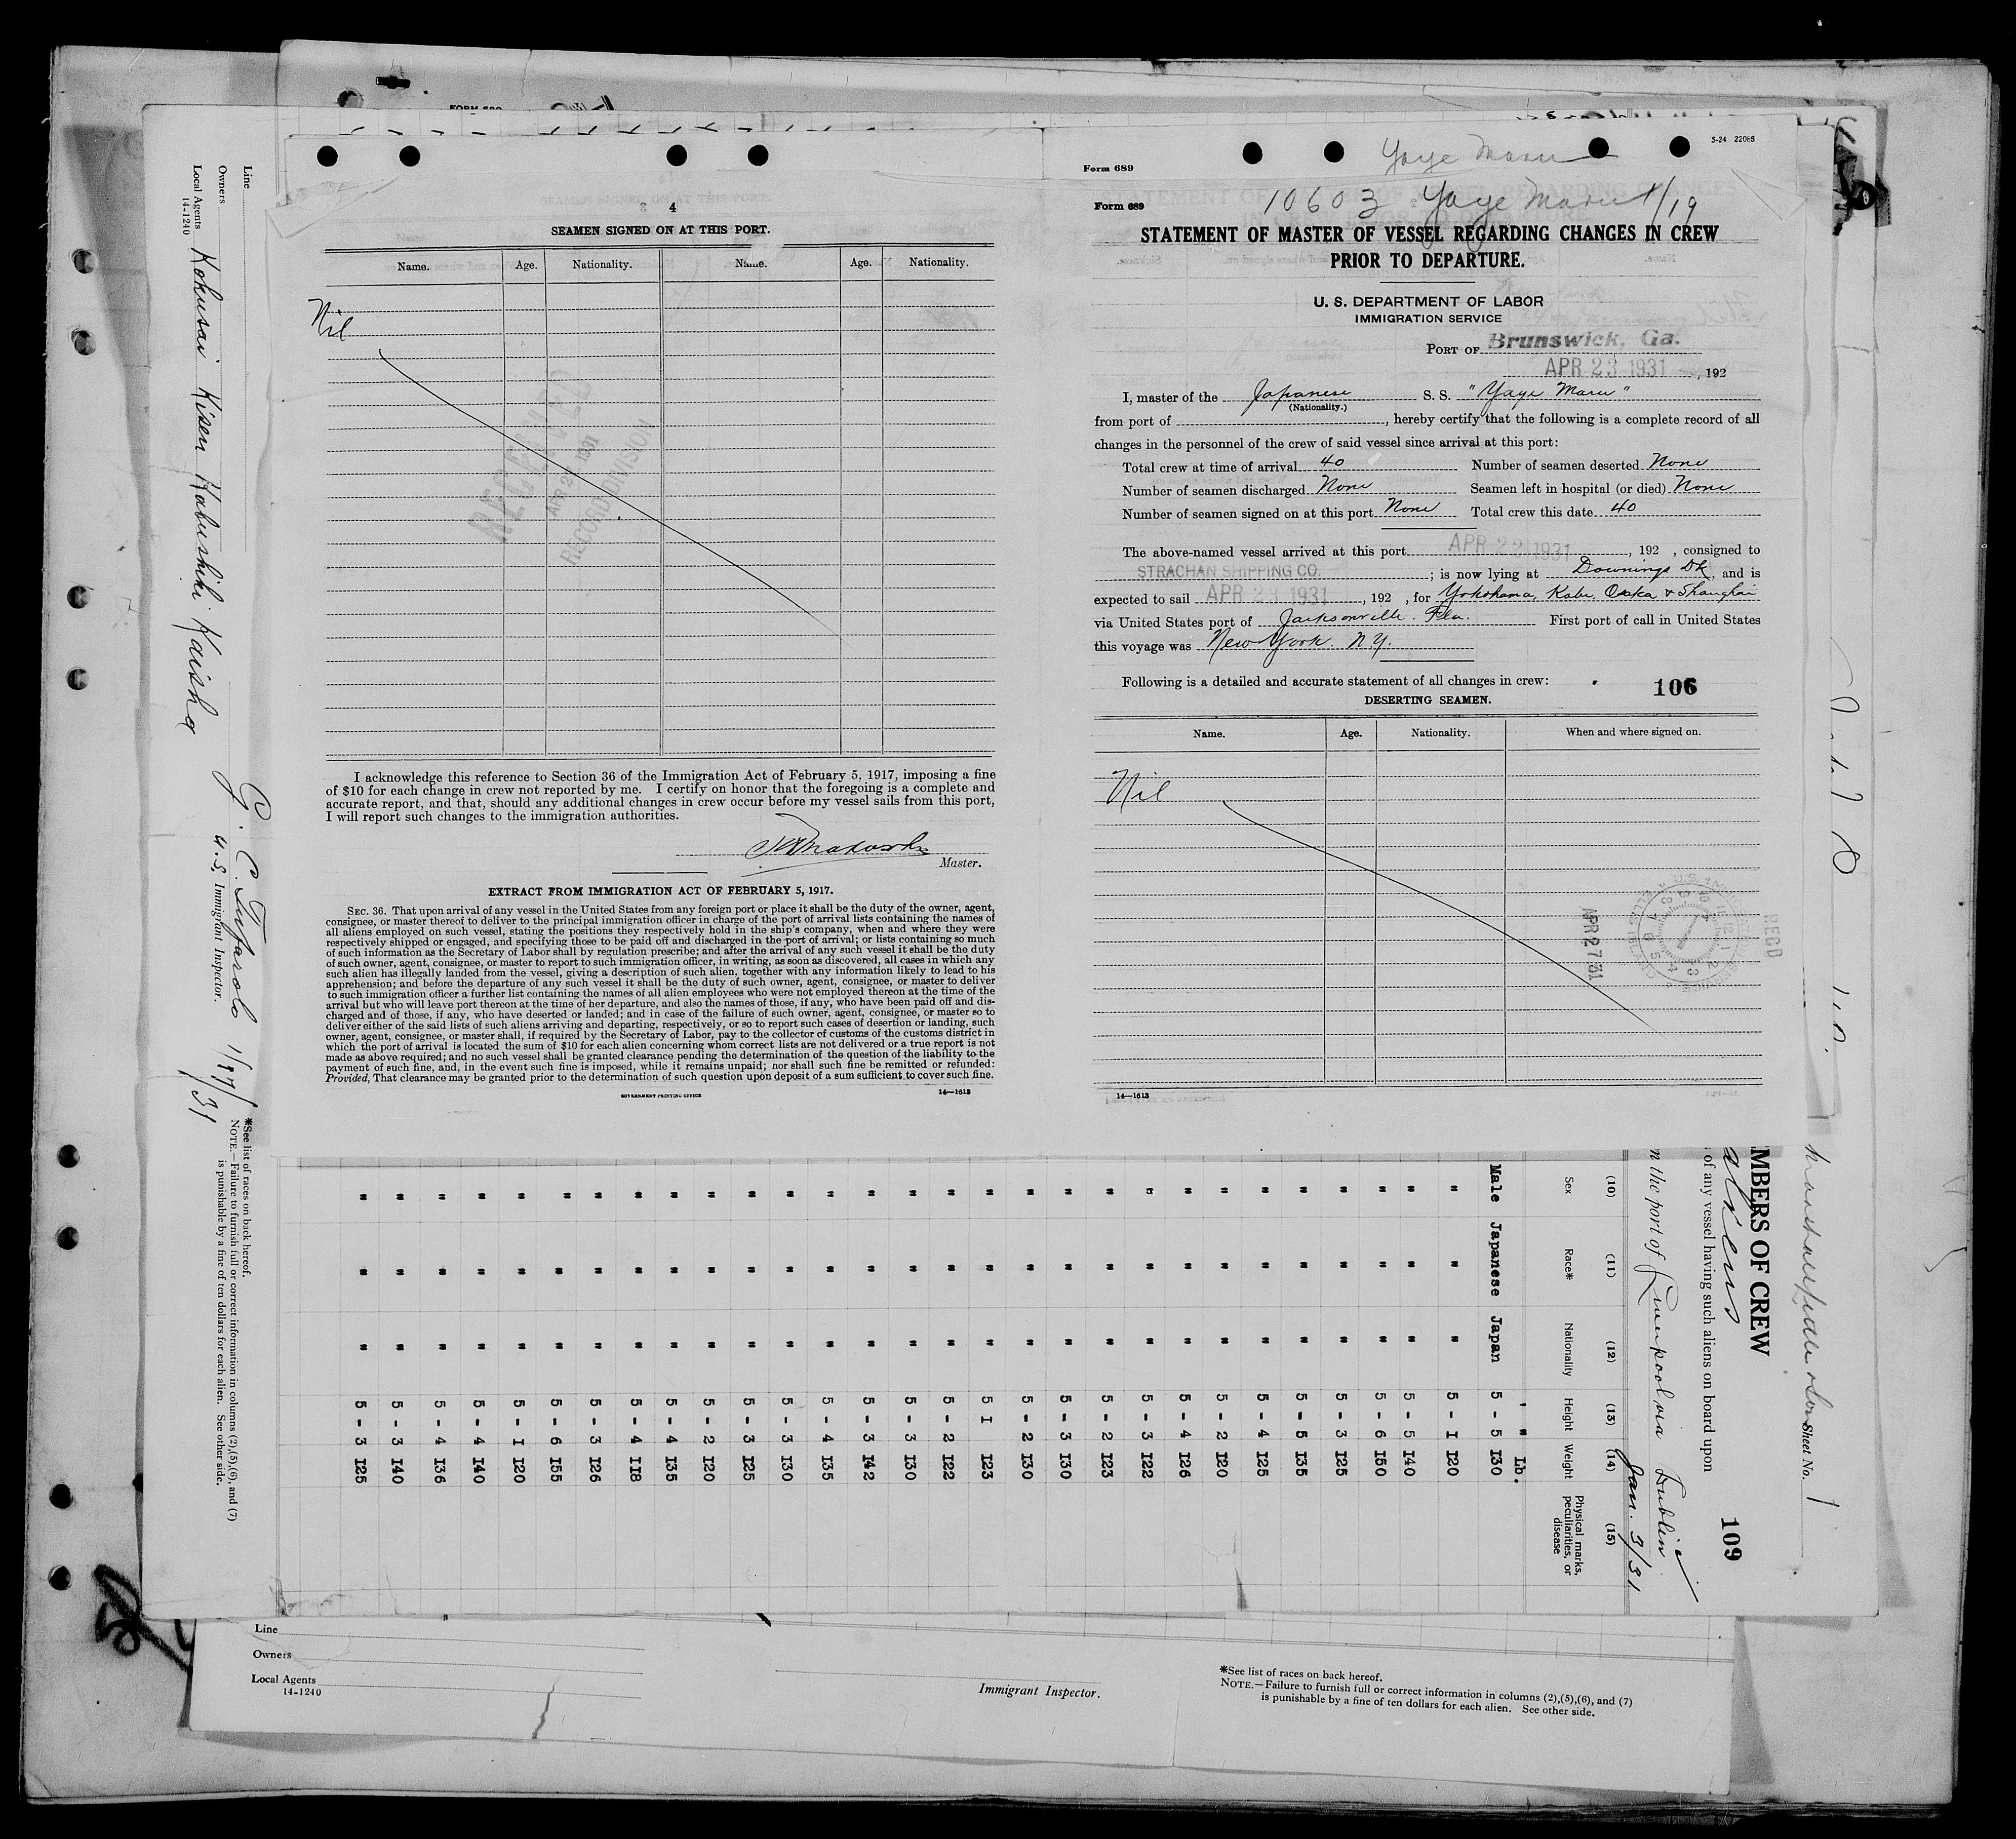 3 4
SEAMEN SIGNED ON AT THIS PORT.
Name. Age. Nationality. Name. Age. Nationality.
Nil
RECEIVED
APR 2 1931
RECORD DIVISION
I acknowledge this reference to Section 36 of the Immigration Act of February 5, 1917, imposing a fine
of $10 for each change in crew not reported by me. I certify on honor that the foregoing is a complete and
accurate report, and that, should any additional changes in crew occur before my vessel sails from this port,
I will report such changes to the immigration authorities.
Master.
EXTRACT FROM IMMIGRATION ACT OF FEBRUARY 5, 1917.
SEC. 36. That upon arrival of any vessel in the United States from any foreign port or place it shall be the duty of the owner, agent,
consignee, or master thereof to deliver to the principal immigration officer in charge of the port of arrival lists containing the names of
all aliens employed on such vessel, stating the positions they respectively hold in the ship's company, when and where they were
respectively shipped or engaged, and specifying those to be paid off and discharged in the port of arrival; or lists containing so much
of such information as the Secretary of Labor shall by regulation prescribe; and after the arrival of any such vessel it shall be the duty
of such owner, agent, consignee, or master to report to such immigration officer, in writing, as soon as discovered, all cases in which any
such alien has illegally landed from the vessel, giving a description of such alien, together with any information likely to lead to his
apprehension; and before the departure of any such vessel it shall be the duty of such owner, agent, consignee, or master to deliver
to such immigration officer a further list containing the names of all alien employees who were not employed thereon at the time of the
arrival but who will leave port thereon at the time of her departure, and also the names of those, if any, who have been paid off and dis-
charged and of those, if any, who have deserted or landed; and in case of the failure of such owner, agent, consignee, or master so to
deliver either of the said lists of such aliens arriving and departing, respectively, or so to report such cases of desertion or landing, such
owner, agent, consignee, or master shall, if required by the Secretary of Labor, pay to the collector of customs of the customs district in
which the port of arrival is located the sum of $10 for each alien concerning whom correct lists are not delivered or a true report is not
made as above required; and no such vessel shall be granted clearance pending the determination of the question of the liability to the
payment of such fine, and, in the event such fine is imposed, while it remains unpaid; nor shall such fine be remitted or refunded:
Provided, That clearance may be granted prior to the determination of such question upon deposit of a sum sufficient to cover such fine.
GOVERNMENT PRINTING OFFICE 14—1613
Form 689 Yaye Maru 5-24 22088
Form 689 10603 Yaye Maru 1/19
STATEMENT OF MASTER OF VESSEL REGARDING CHANGES IN CREW
PRIOR TO DEPARTURE.
U. S. DEPARTMENT OF LABOR
IMMIGRATION SERVICE
PORT OF Brunswick, Ga.
APR 23 1931, 192
I, master of the Japanese S. S. "Yaye Maru"
(Nationality.)
from port of , hereby certify that the following is a complete record of all
changes in the personnel of the crew of said vessel since arrival at this port:
Total crew at time of arrival 40 Number of seamen deserted None
Number of seamen discharged None Seamen left in hospital (or died) None
Number of seamen signed on at this port None Total crew this date 40
The above-named vessel arrived at this port APR 22 1931, 192 , consigned to
STRACHAN SHIPPING CO. ; is now lying at Downings Dk, and is
expected to sail APR 23 1931, 192 , for Yokohama, Kobe, Osaka & Shanghai
via United States port of Jacksonville. Fla. First port of call in United States
this voyage was New York. N.Y.
Following is a detailed and accurate statement of all changes in crew: 106
DESERTING SEAMEN.
Name. Age. Nationality. When and where signed on.
Nil
RECD
APR 27 31
14—1613
Line
Owners
Local Agents Kokusai Kisen Kabushiki Kaisha
14-1240
U.S. Immigrant Inspector.
1/27/31
*See list of races on back hereof.
NOTE.—Failure to furnish full or correct information in columns (2),(5),(6), and (7)
is punishable by a fine of ten dollars for each alien. See other side.
Sheet No. 1
MBERS OF CREW
109
aliens
of any vessel having such aliens on board upon
n the port of via Dublin
Jan. 3/31
(10) (11) (12) (13) (14) (15)
Sex Race* Nationality Height Weight Physical marks, peculiarities, or disease
' " Lb.
Male Japanese Japan 5 - 5 130
" " " 5 - I 120
" " " 5 - 5 140
" " " 5 - 6 150
" " " 5 - 3 125
" " " 5 - 5 135
" " " 5 - 4 125
" " " 5 - 2 120
" " " 5 - 4 126
" " " 5 - 3 122
" " " 5 - 2 123
" " " 5 - 3 130
" " " 5 - 2 130
" " " 5 I 123
" " " 5 - 2 122
" " " 5 - 3 130
" " " 5 - 3 142
" " " 5 - 4 135
" " " 5 - 3 130
" " " 5 - 3 125
" " " 5 - 2 120
" " " 5 - 4 135
" " " 5 - 4 118
" " " 5 - 3 126
" " " 5 - 6 155
" " " 5 - I 120
" " " 5 - 4 140
" " " 5 - 4 136
" " " 5 - 3 140
" " " 5 - 3 125
Line
Owners
Local Agents
14-1240
Immigrant Inspector.
*See list of races on back hereof.
NOTE.—Failure to furnish full or correct information in columns (2),(5),(6), and (7)
is punishable by a fine of ten dollars for each alien. See other side.